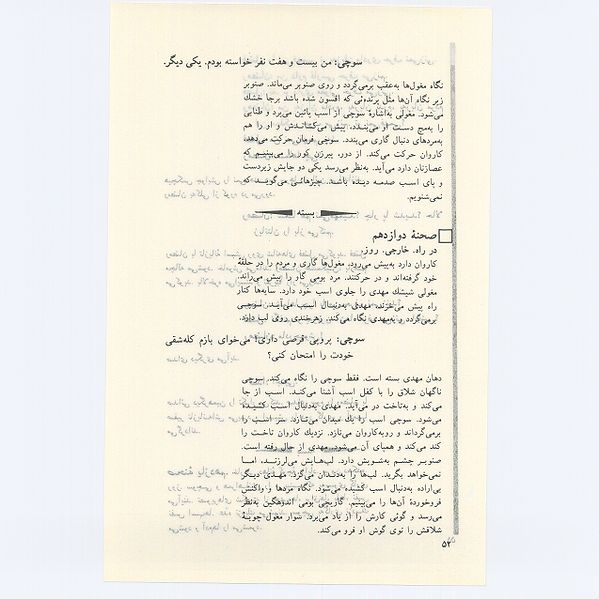 سوچی: من بیست و هفت نفر خواسته بودم. یکی دیگر.
نگاه مغول‌ها به‌عقب برمی‌گردد و روی صنوبر می‌ماند. صنوبر
زیر نگاه آن‌ها مثل پرنده‌ئی که افسون شده باشد برجا خشك
می‌شود. مغولی به‌اشارهٔ سوچی از اسب پائین می‌پرد و طنابی
را به‌مچ دست او می‌بندد، پیش می‌کشاندش و او را هم
به‌مردهای دنبال گاری می‌بندد. سوچی فرمان حرکت می‌دهد.
کاروان حرکت می‌کند. از دور، پیرزن کور را می‌بینیم که
عصازنان دارد می‌آید. به‌نظر می‌رسد یکی دو جایش زیردست
و پای اسب صدمه دیده باشد. چیزهائی می‌گوید که
نمی‌شنویم.
بسته
صحنهٔ دوازدهم
در راه. خارجی. روز.
کاروان دارد به‌پیش می‌رود. مغول‌ها گاری و مردم را در حلقهٔ
خود گرفته‌اند و در حرکتند. مرد بومی گاو را پیش می‌راند.
مغولی شیشك مهدی را جلوی اسب خود دارد. سایه‌ها کنار
راه پیش می‌خزند. مهدی به‌دنبال اسب می‌آید. سوچی
برمی‌گردد و به‌مهدی نگاه می‌کند. زهرخندی روی لب دارد.
سوچی: پروپی قرصی داری! می‌خوای بازم کله‌شقی
خودت را امتحان کنی؟
دهان مهدی بسته است. فقط سوچی را نگاه می‌کند. سوچی
ناگهان شلاق را با کفل اسب آشنا می‌کند. اسب از جا
می‌کند و به‌تاخت در می‌آید. مهدی به‌دنبال اسب کشیده
می‌شود. سوچی اسب را یك میدان می‌تازد. سر اسب را
برمی‌گرداند و روبه‌کاروان می‌تازد. نزدیك کاروان تاخت را
کند می‌کند و همپای آن می‌شود. مهدی از حال رفته است.
صنوبر چشم به‌شویش دارد. لب‌هایش می‌لرزند، اما
نمی‌خواهد بگرید. لب‌ها را به‌دندان می‌گزد. مهدی دیگر
بی‌اراده به‌دنبال اسب کشیده می‌شود. نگاه مردها و واکنش
فروخوردهٔ آن‌ها را می‌بینیم. گاریچی بومی اندوهگین به‌نظر
می‌رسد و گوئی کارش را از یاد می‌برد. سوار مغول چوبهٔ
شلاقش را توی گوش او فرو می‌کند.
۵۲